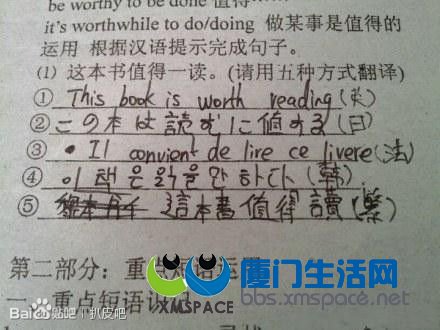 be worthy to be done 值得
it's worthwhile to do/doing 做某事是值得的
运用 根据汉语提示完成句子。
(1) 这本书值得一读。(请用五种方式翻译)
① This book is worth reading(英)
② この本は読むに値する(日)
③ • Il convient de lire ce livere(法)
④ 이 책은 읽을만 하다(韩)
⑤ 這本書值得讀(繁)
第二部分：重点短语运用
一、重点短语识记
Baidu贴吧 / 扒皮吧
厦门生活网
XMSPACE
bbs.xmspace.net